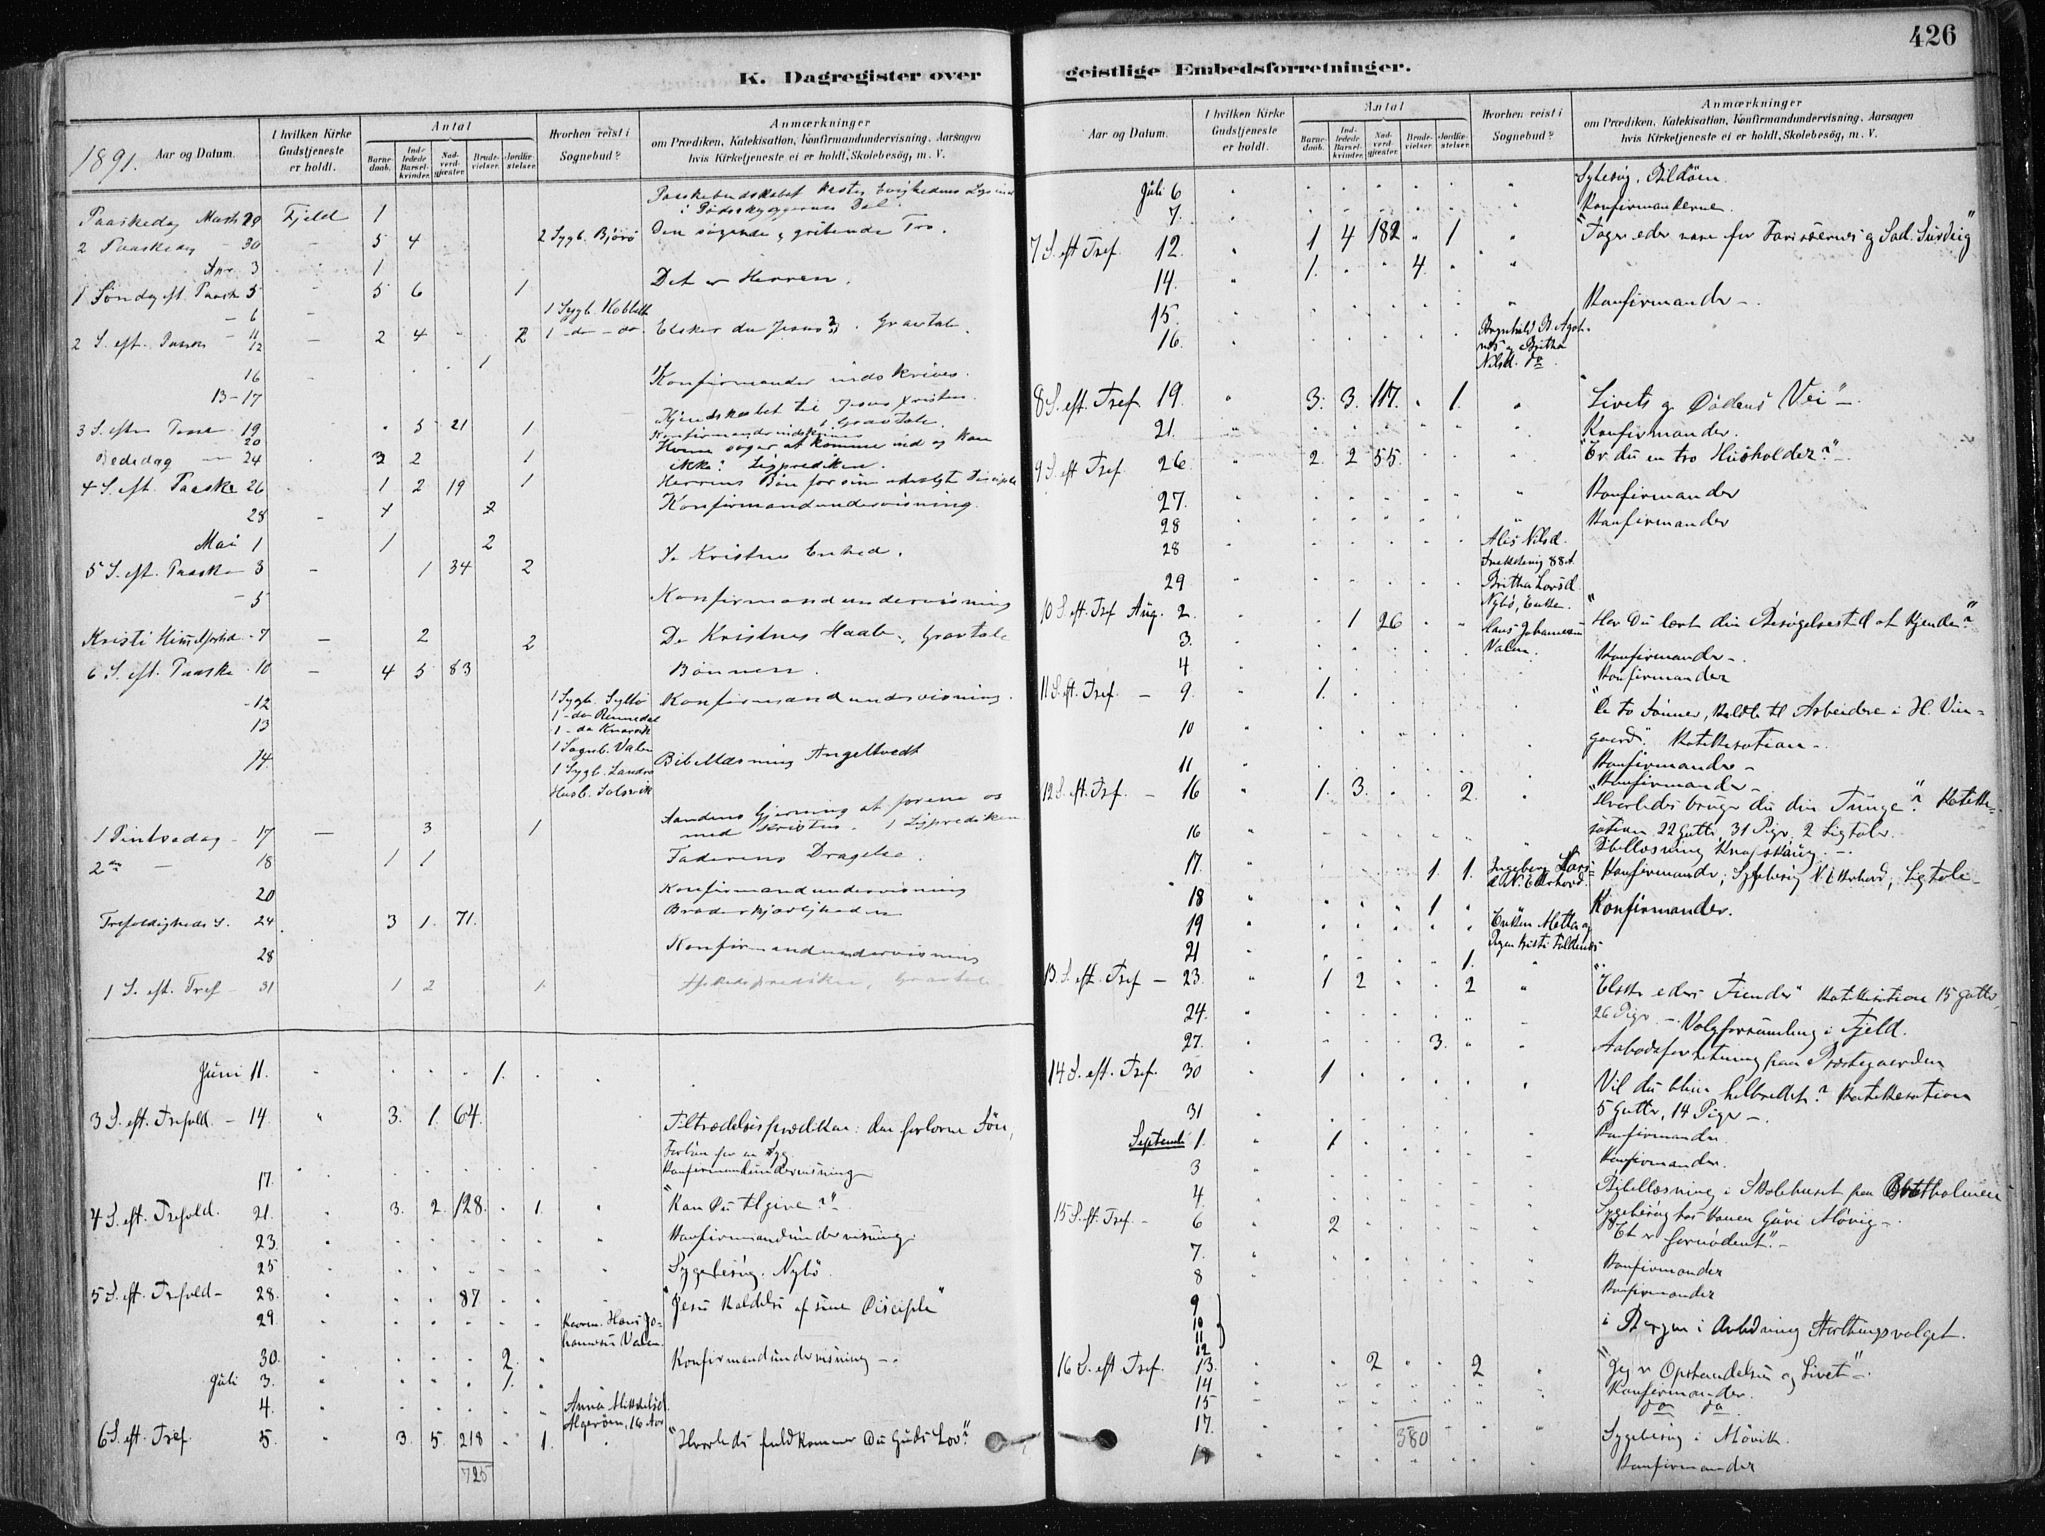 426
K. Dagregister over geistlige Embedsforretninger.
Aar og Datum.
I hvilken Kirke Gudstjeneste er holdt.
Antal
Barnedaab.
Indledede Barselkvinder.
Nadverdgjæster.
Brudevielser.
Jordfæstelser.
Hvorhen reist i Sognebud?
Anmærkninger
om Prædiken, Katekisation, Konfirmandundervisning, Aarsagen hvis Kirketjeneste ei er holdt, Skolebesøg, m. V.
1891.
Paaskedag Marts 29 Fjeld 1
2 Paaskedag - 30 5 4 2 Sygb. Bjorö Den søgende g gribende Tro.
Apr. 3 1
1 Søndag eft. Paaske 5 5 6 1 Det er Herren.
- 6 1 Sygb.
2 S. eft. Paaske - 11 12 2 4 2 1 - do - do. Elsker du Jesus? 2 Gravtale.
16 1
13-17 Konfirmander indskrives.
3 S. efter Paaske 19 5 21 1 Kjendskabet til Jesus Kristus. 1 Gravtale.
20
Bededag - 24 3 2 1 Hvem søger at komme ind og kan ikke? Ligprediken.
4 S. eft. Paaske 26 1 2 19 1 Herrens Bøn for sine
28 4 2 Konfirmandundervisning.
Mai 1 1 2
5 S. eft. Paaske 3 1 34 2 De Kristnes Enhed.
- 5 Konfirmandundervisning
Kristi Himmelfartsd. - 7 2 2 De Kristnes Haab. Gravtale
6 S. eft. Paaske - 10 4 5 83 Bønnen.
- 12 1 Sygb. Syltö Konfirmandundervisning.
13 1 - do Rennedal
1 - do Knarvik
14 1 Sognb. Valen Bibellæsning Angeltvedt
1 Sygb. Landro
Husb. Solsvik
1 Pintsedag - 17 3 1 Aandens Gjerning at forene os med Kristus. 1 Ligprediken
2den - 18 1 1 Faderens Dragelse.
20 Konfirmandundervisning
Trefoldigheds S. 24 3 1 71. Broderkjærligheden
28 Konfirmandundervisning
1 S. eft. Tref - 31 1 2 1 Afskedsprædiken, Gravtale
Juni 11. 1.
3 S. eft. Trefold. - 14. 3. 1. 64. Tiltrædelsesprædiken: den forlorne Søn,
Forbøn for en Syg
17. Konfirmandundervisning
4 S. eft. Trefold. 21. 3. 2. 128. 1. "Kan Du tilgive?"
23. Konfirmandundervisning.
25 Sygebesøg. Nybö.
5 S. eft. Trefold - 28. 87. "Jesu Kaldelse af sine Disciple"
29. Hans Johannesen Valen.
30. 2. Konfirmandundervisning -.
Juli 3. 1.
4. Anna Mikkelsd. Algeröen, 16 Aar
6 S. eft. Tref. 5. 3. 5. 218 1. "Hvorledes fuldkommer Du Guds Lov?"
725
Aar og Datum.
I hvilken Kirke Gudstjeneste er holdt.
Antal
Barnedaab.
Indledede Barselkvinder.
Nadverdgjæster.
Brudevielser.
Jordfæstelser.
Hvorhen reist i Sognebud?
Anmærkninger
om Prædiken, Katekisation, Konfirmandundervisning, Aarsagen hvis Kirketjeneste ei er holdt, Skolebesøg, m. V.
Juli 6 Sygbesøg. Bildöen
7. Konfirmanderne.
7 S. eft Tref. 12. 1 4 182 1 "Tager eder vare for Farisæernes g Sad. Surdeig"
14. 1. 4.
15. Konfirmander -.
16. Britha Nilsd. do
8 S. eft. Tref. 19. 3. 3. 117. 1. "Livets g Dødens Vei" -.
21. Konfirmander.
9 S. eft Tref. 26. 2. 2 55. "Er du en tro Husholder?" -
27. Konfirmander
28 Konfirmander
28 Alis Nilsd. 88 A.
29 Britha Larsd. Nybö, Enken.
10 S. eft. Tref Aug. 2. 1 26 Hans Johannesen Valen. "Har Du lært din Besøgelsestid at kjende?"
3. Konfirmander -.
4 Konfirmander
11 S. eft. Tref. - 9. 1. "De to Sønner, kaldte til Arbeidere i H. Vingaard". Katekisation -.
10 Konfirmander -
11 Konfirmander -
12 S. eft. Tref. - 16 1. 3. 2. "Hvorledes bruger du din Tunge"? Katekisation 22 Gutter, 31 Piger, 2 Ligtaler.
16 Bibellæsning Knapskaug. -.
17. 1. 1. Ingeborg Larsd. Konfirmander, Sygebesøg, Ligtale -
18 1 Konfirmander.
19 Enken Metta og Pigen Kristi
21 1.
13 S. eft. Tref - 23. 1 2 2 "Elsker eders Fiender" Katekisation 15 Gutter, 26 Piger. -
24. Valgforsamling i Fjeld.
27. 3. Aabodsforretning paa Præstegaarden
14 S. eft. Tref. 30 1 Vil du blive helbredet? Katekisation 5 Gutter, 14 Piger -.
31 Konfirmander
September 1. 1 Konfirmander.
3 Bibellæsning i Skolehuset paa Brattholmen
4. Sygebesøg hos Konen Guri Møvig -.
15 S. eft. Tref. - 6 2 "Et er fornødent." -
7. Konfirmander
8 Konfirmander
9
10
11 i Bergen i Anledning Storthingsvalget.
12
16 S. eft Tref. 13. 2 2 "Jeg er Opstandelsen og Livet" -.
14 Konfirmander.
15 do do
17. Sygebesøg i Møvik
18 Konfirmander
380